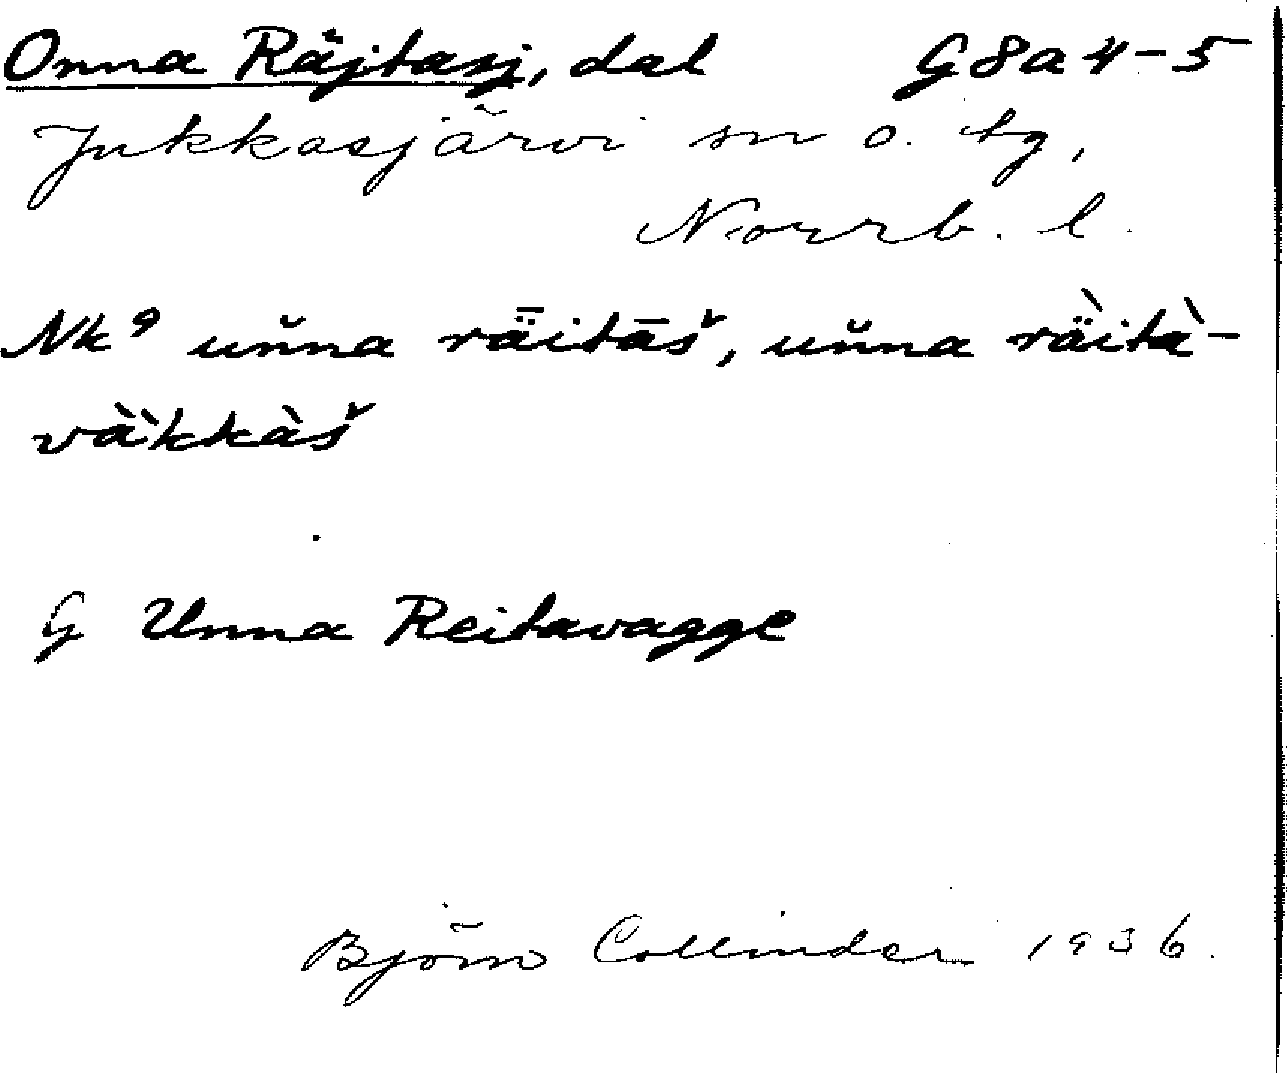 Onna Räjtasj, dal G8a4-5
Jukkasjärvi sn o. tg,
Norrb. l.
Nk⁹ uňna rǟitāš, uňna rä̀ità-
väkkàš
G Unna Reitavagge
Björn Collinder 1936.